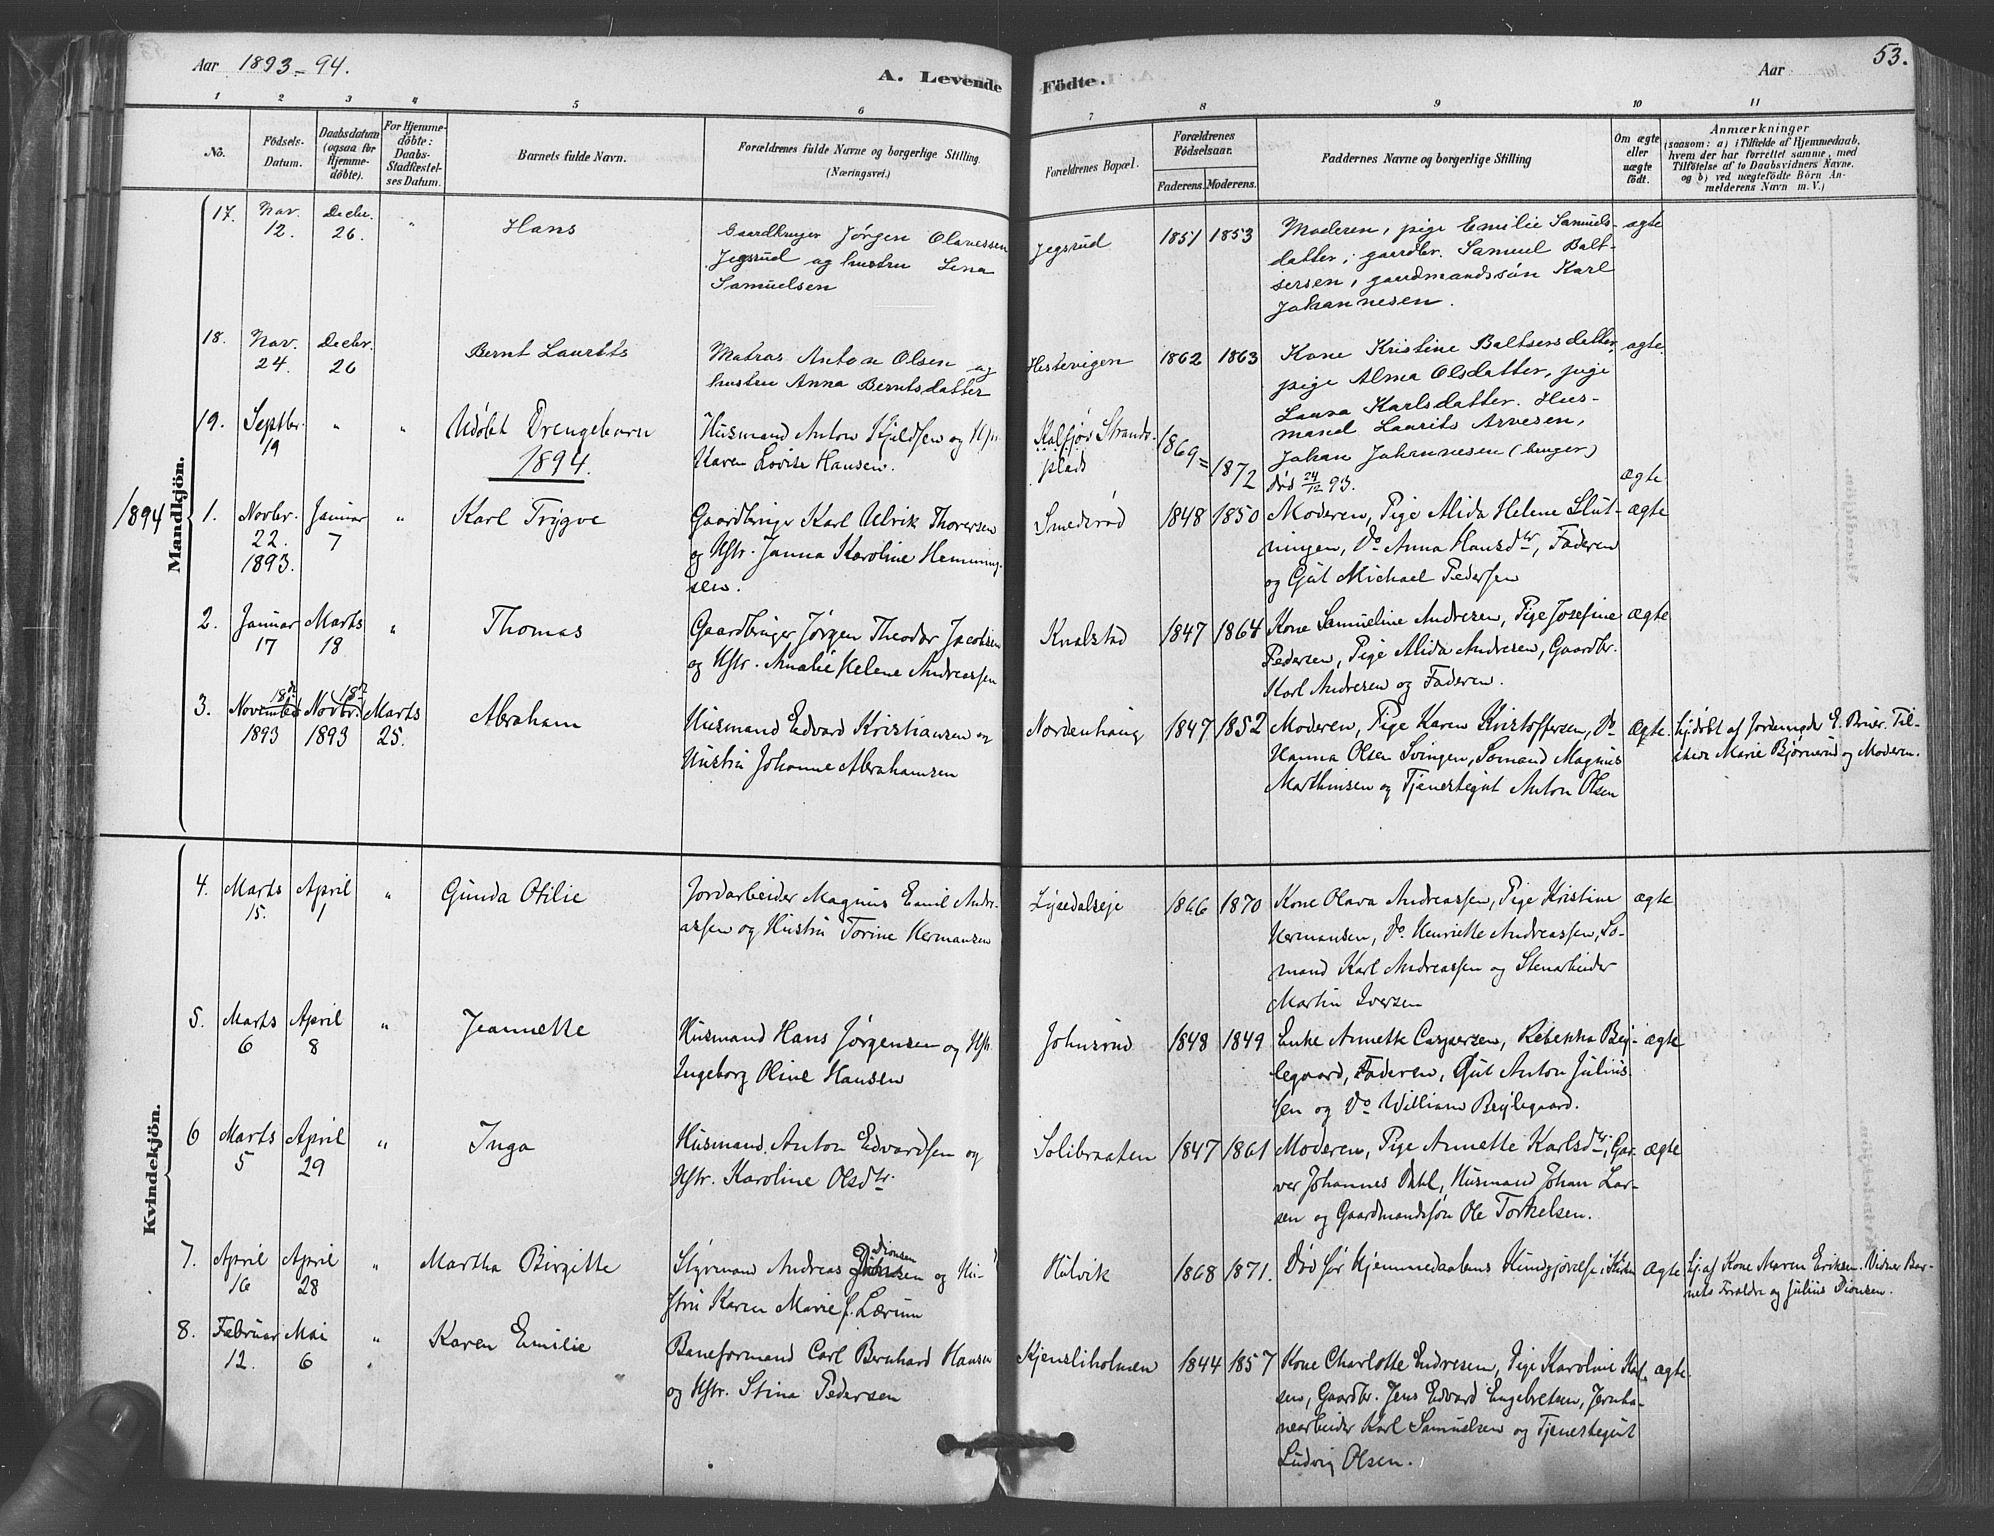 Aar 1893-94.
A. Levende Födte.
Aar
53.
1 2 3 4 5 6 7 8 9 10 11
No.
Födsels-Datum.
Daabsdatum (ogsaa for Hjemme-döbte).
For Hjemme-döbte: Daabs-Stadfæstel-ses Datum.
Barnets fulde Navn.
Forældrenes fulde Navne og borgerlige Stilling.
(Næringsvei.)
Forældrenes Bopæl.
Forældrenes Födselsaar.
Faderens. Moderens.
Faddernes Navne og borgerlige Stilling
Om ægte eller uægte födt.
Anmærkninger
(saasom: a) i Tilfælde af Hjemmedaab,
hvem der har forrettet samme, med
Tilföielse af to Daabsvidners Navne.
og b) ved uægtefödte Börn An-
melderens Navn m. V.)
Mandkjön.
17. Nov. 12. Decbr. 26. " Hans
Gaardbruger Jørgen Olavessen
Jegsrud og hustru Lena
Samuelsen
Jegsrud 1851 1853
Moderen, pige Emilie Samuels-
datter, gaardbr. Samuel Balt-
sersen, gaardmandssøn Karl
Johannesen.
ægte
18. Nov. 24. Decbr. 26 Bernt Laurits
Matros Anton Olsen og
hustru Anna Berntsdatter
Hestevigen 1862 1863
Kone Kristine Baltsersdatter,
pige Alma Olsdatter, pige
Laura Karlsdatter. Hus-
mand Laurits Arvesen,
Johan Johannesen (bruger)
ægte.
19. Septbr. 19 " " Udøbt Drengebarn
Husmand Anton Kjeldsen og Hstr.
Karen Lovise Hansen.
Kalsjøs Strands-
plads
1869= 1872
død 24/12 93.
ægte
1894.
1894
1. Novbr. 22. 1893. Januar 7 " Karl Trygve
Gaardbruger Karl Ulrik Thoresen
og Hstr. Janna Karoline Henning-
sen.
Smederød 1848 1850
Moderen, Pige Alida Helene Slut-
ningen, Do Anna Hansdtr, Faderen
og Gut Michael Pedersen
ægte
2. Januar 17 Marts 18 " Thomas
Gaardbruger Jørgen Theodor Jacobsen
og Hstr. Amalie Helene Andreassen
Knalstad 1847 1864
Kone Samueline Andresen, Pige Josefine
Pedersen, Pige Alida Andresen, Gaardbr.
Karl Andresen og Faderen.
ægte
3. November 18de 1893 Novbr. 18de 1893 Marts 25. Abraham
Husmand Edvard Kristiansen og
Hustru Johanne Abrahamsen
Nordenhaug 1847 1852
Moderen, Pige Karen Kristoffersen, Do
Hanna Olsen Svingen, Sømand Magnus
Marthinsen og Tjenestegut Anton Olsen
ægte.
hj.døbt af Jordemoder E. Bruer. Til-
stede Marie Bjørnerud og Moderen.
Kvindekjön.
4. Marts 15. April 1 " Gunda Otilie
Jordarbeider Magnus Emil Andre-
assen og Hustru Torine Hermansen
Lysedalseje 1866 1870
Kone Olava Andreassen, Pige Kristine
Hermansen, Do. Henriette Andreassen, Sø-
mand Karl Andreassen og Stenarbeider
Martin Iversen
ægte
5. Marts 6 April 8 " Jeannette
Husmand Hans Jørgensen og Hstr.
Ingeborg Oline Hansen
Johnsrud 1848 1849
Enke Annette Caspersen, Rebekka Bøj-
legaard, Faderen, Gut Anton Julius-
sen og Do William Bøjlegaard.
ægte
6 Marts 5 April 29 " Inga
Husmand Anton Edvardsen og
Hstr. Karoline Olsdtr.
Solibraaten 1847 1861
Moderen, Pige Annette Karlsdtr, Gar-
ver Johannes Dahl, Husmand Johan Lar-
sen og Gaardmandssøn Ole Torkelsen.
ægte
7. April 16 April 28 " Martha Birgitte
Styrmand Andreas Dionsen og Hu-
stru Karen Marie f. Lærum
Hulvik 1868 1871.
Død før Hjemmedaabens Kundgjørelse i Kirken
ægte
hj. af Kone Maren Eriksen. Vidner Bar-
nets Forældre og Julius Dionsen.
8. Februar 12. Mai 6 " Karen Emilie
Baneformand Carl Bernhard Hansen
og Hstr. Stina Pedersen
Kjensliholmen 1844 1857
Kone Charlotte Endresen, Pige Karoline Han-
sen, Gaardbr. Jens Edvard Engebretsen, Jernba-
nearbeider Karl Samuelsen og Tjenestegut
Ludvig Olsen.
ægte